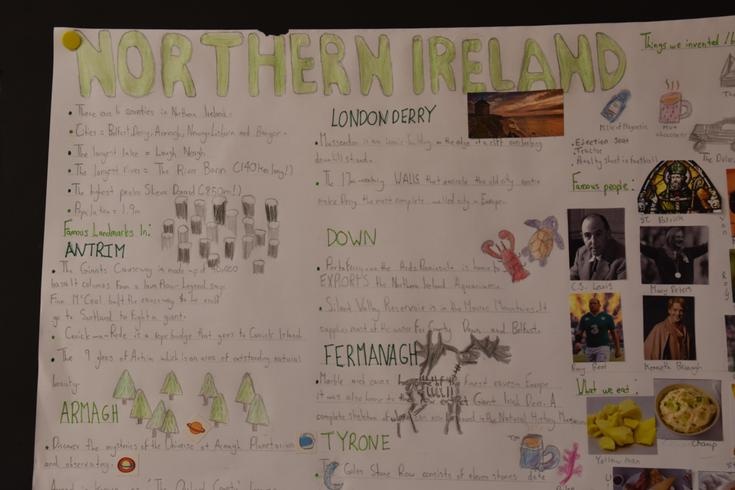 NORTHERN IRELAND
• There are 6 counties in Northern Ireland.
• Cities = Belfast, Derry, Armagh, Newry, Lisburn and Bangor.
• The largest lake = Lough Neagh
• The largest river = The River Bann (140 km long!)
• The highest peak = Slieve Donard (850m!)
• Population = 1.9m
Famous Landmarks In:
ANTRIM
• The Giants Causeway is made up of 40,000
basalt columns from a lava flow. Legend says
Finn McCool built the causeway to
go to Scotland to fight a giant.
• Carrick-na-Rede is a rope bridge that goes to Carrick Island
• The 9 glens of Antrim which is an area of outstanding natural
beauty.
ARMAGH
• Discover the mysteries of the Universe at Armagh Planetarium
and observatory.
LONDONDERRY
• Mussenden is an iconic building on the edge of a cliff overlooking
downhill strand.
• The 17th century WALLS that encircle the old city centre
make Derry the most complete walled city in Europe.
DOWN
• Portaferry on the Ards Peninsula is home to
EXPLORIS the Northern Ireland Aquarium.
• Silent Valley Reservoir is in the Mourne Mountains. It
supplies most of the water for County Down and Belfast.
FERMANAGH
• Marble arch caves finest caves in Europe
It was also home to the Giant Irish Deer. A
complete skeleton of found in the Natural History Museum
TYRONE
Stone Row consists of eleven stones date
Things we invented
Milk of Magnesia
Hot chocolate
• Ejection Seat
• Tractor
• Penalty shot in football
The
Famous people:
St. Patrick
C.S. Lewis
Mary Peters
Rory Best
Kenneth Branagh
What we eat:
Yellow man
Champ